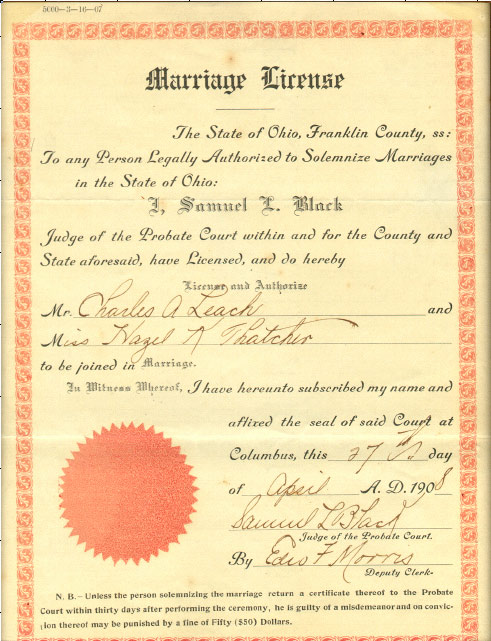 5000—3—16—07
Marriage License
The State of Ohio, Franklin County, ss:
To any Person Legally Authorized to Solemnize Marriages
in the State of Ohio:
I, Samuel L. Black
Judge of the Probate Court within and for the County and
State aforesaid, have Licensed, and do hereby
License and Authorize
Mr. Charles A Leach and
Miss Hazel K Thatcher
to be joined in Marriage.
In Witness Whereof, I have hereunto subscribed my name and
affixed the seal of said Court at
Columbus, this 27th day
of April A. D. 1908
Samuel L Black
Judge of the Probate Court.
By F Morris
Deputy Clerk-
N. B.—Unless the person solemnizing the marriage return a certificate thereof to the Probate
Court within thirty days after performing the ceremony, he is guilty of a misdemeanor and on convic-
tion thereof may be punished by a fine of Fifty ($50) Dollars.